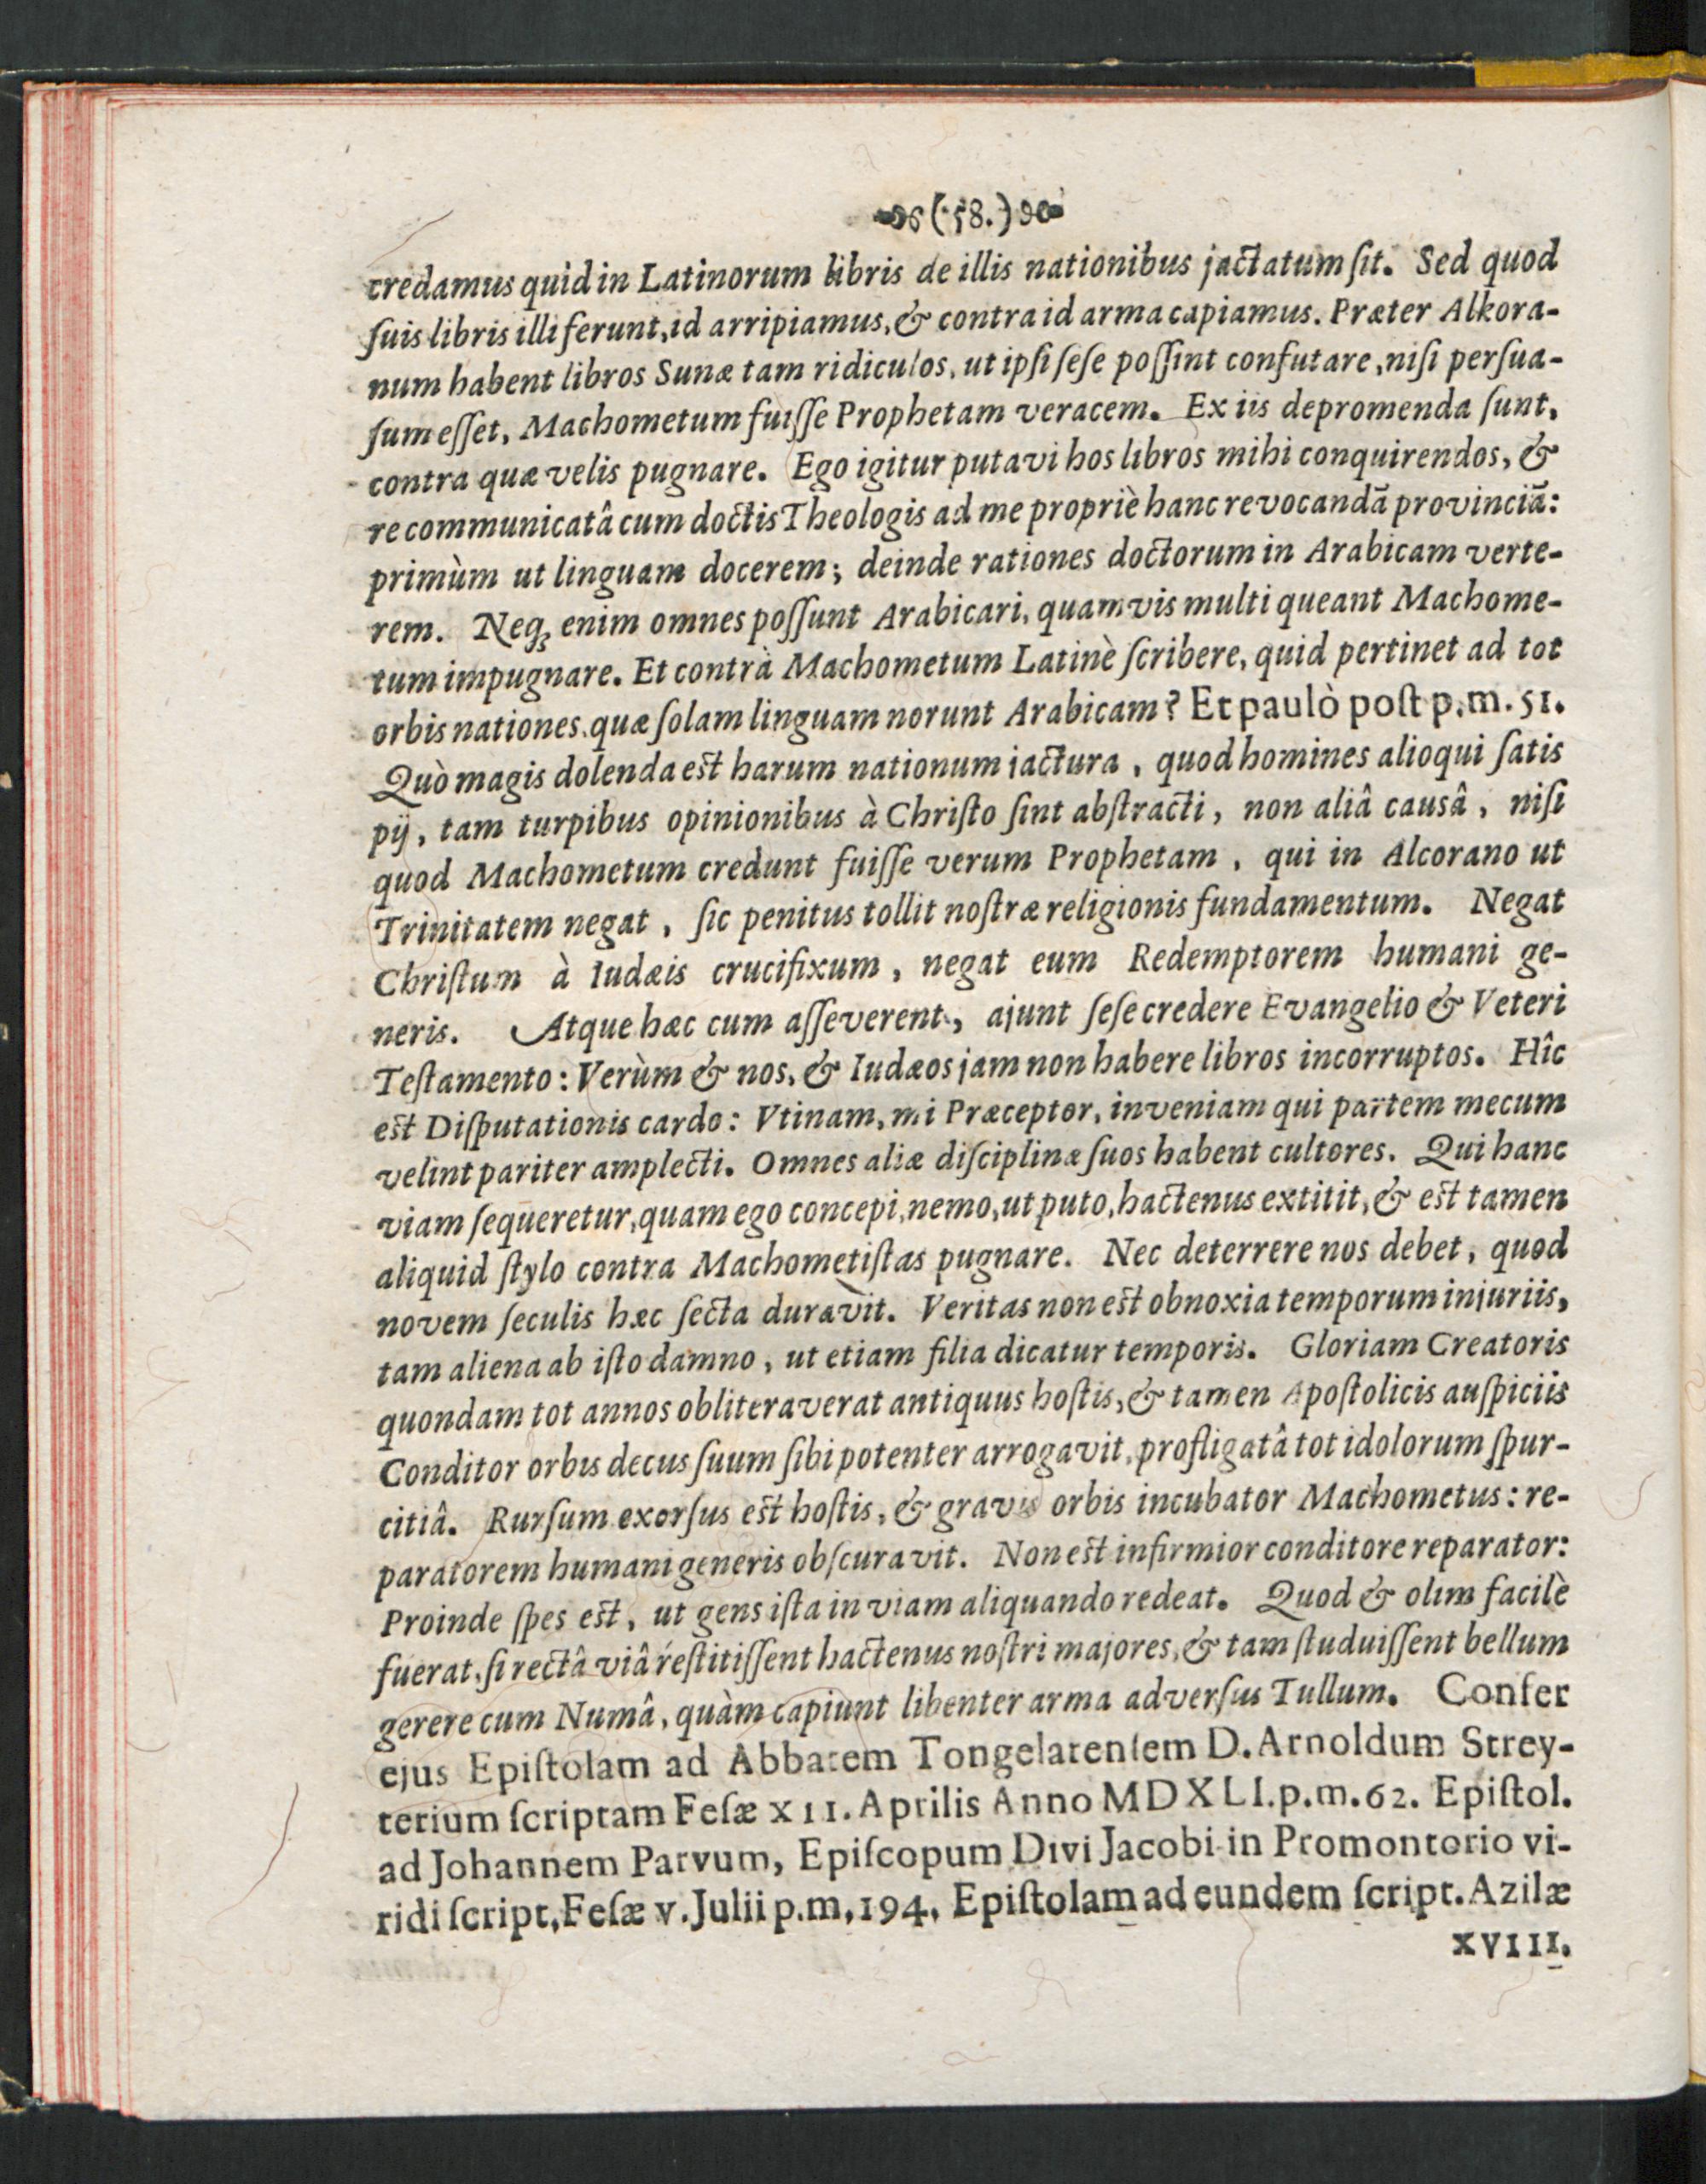 (58.)
credamus quid in Latinorum libris de illis nationibus jactatum ſit. Sed quod
ſuis libris illi ferunt, id arripiamus, & contra id arma capiamus. Præter Alkora-
num habent libros Sunæ tam ridiculos, ut ipſi ſeſe poſſint confutare, niſi perſua-
ſum eſſet, Machometum fuiſſe Prophetam veracem. Ex iis depromenda ſunt,
contra quæ velis pugnare. Ego igitur putavi hos libros mihi conquirendos, &
re communicatâ cum doctis Theologis ad me propriè hanc revocandā provinciā:
primùm ut linguam docerem; deinde rationes doctorum in Arabicam verte-
rem. Neq; enim omnes poſſunt Arabicari, quamvis multi queant Machome-
tum impugnare. Et contrà Machometum Latinè ſcribere, quid pertinet ad tot
orbis nationes, quæ ſolam linguam norunt Arabicam? Et paulò poſt p.m. 51.
Quò magis dolenda eſt harum nationum jactura, quod homines alioqui ſatis
pij, tam turpibus opinionibus à Chriſto ſint abſtracti, non aliâ causâ, niſi
quod Machometum credunt fuiſſe verum Prophetam, qui in Alcorano ut
Trinitatem negat, ſic penitus tollit noſtræ religionis fundamentum. Negat
Chriſtum à Iudæis crucifixum, negat eum Redemptorem humani ge-
neris. Atque hæc cum aſſeverent, ajunt ſeſe credere Evangelio & Veteri
Teſtamento: Verùm & nos, & Iudæos jam non habere libros incorruptos. Hîc
eſt Diſputationis cardo: Vtinam, mi Præceptor, inveniam qui partem mecum
velint pariter amplecti. Omnes aliæ diſciplinæ ſuos habent cultores. Qui hanc
viam ſequeretur, quam ego concepi, nemo, ut puto, hactenus extitit, & eſt tamen
aliquid ſtylo contra Machometiſtas pugnare. Nec deterrere nos debet, quod
novem ſeculis hæc ſecta duravit. Veritas non eſt obnoxia temporum injuriis,
tam aliena ab iſto damno, ut etiam filia dicatur temporis. Gloriam Creatoris
quondam tot annos obliteraverat antiquus hoſtis, & tamen Apoſtolicis auſpiciis
Conditor orbis decus ſuum ſibi potenter arrogavit, profligatâ tot idolorum ſpur-
citiâ. Rurſum exorſus eſt hoſtis, & gravis orbis incubator Machometus: re-
paratorem humani generis obſcuravit. Non eſt infirmior conditore reparator:
Proinde ſpes eſt, ut gens iſta in viam aliquando redeat. Quod & olim facilè
fuerat, ſi rectâ viâ reſtitiſſent hactenus noſtri majores, & tam ſtuduiſſent bellum
gerere cum Numâ, quàm capiunt libenter arma adverſus Tullum. Confer
ejus Epiſtolam ad Abbatem Tongelatenſem D. Arnoldum Strey-
terium ſcriptam Feſæ XII. Aprilis Anno MDXLI. p.m. 62. Epiſtol.
ad Johannem Parvum, Epiſcopum Divi Jacobi in Promontorio vi-
ridi ſcript, Feſæ v. Julii p.m, 194, Epiſtolam ad eundem ſcript. Azilæ
XVIII.